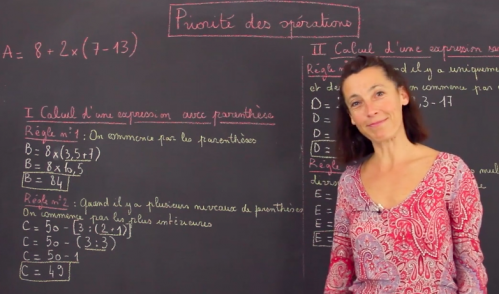 Priorité des opérations
A = 8 + 2 x (7 - 13)
I Calcul d'une expression avec parenthèse
Règle n°1 : On commence par les parenthèses
B = 8 x (3,5 + 7)
B = 8 x 10,5
B = 84
Règle n°2 : Quand il y a plusieurs niveaux de parenthèses
On commence par les plus intérieures
C = 50 - [3 : (2+1)]
C = 50 - (3 : 3)
C = 50 - 1
C = 49
II Calcul d'une expression
Règle n° d il y a uniquement
et de on commence par
D = ,3 - 17
D =
D =
D =
Règle
E =
E =
E =
E =